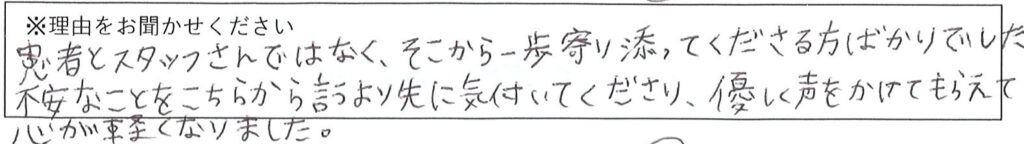 ※理由をお聞かせください
患者とスタッフさんではなく、そこから一歩寄り添ってくださる方ばかりでした
不安なことをこちらから言うより先に気付いてくださり、優しく声をかけてもらえて
心が軽くなりました。